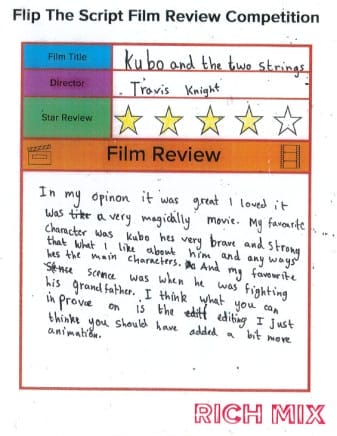 Flip The Script Film Review Competition
Film Title
Kubo and the two strings
Director
Travis Knight
Star Review
Film Review
In my opinon it was great I loved it
was a very magically movie. My favourite
character was kubo hes very brave and strong
that what I like about him and any ways
hes the main characters. And my favourite
Scence was when he was fighting
his grand father. I think what you can
inprove on is the editing I Just
thinke you should have added a bit more
animation.
RICH MIX